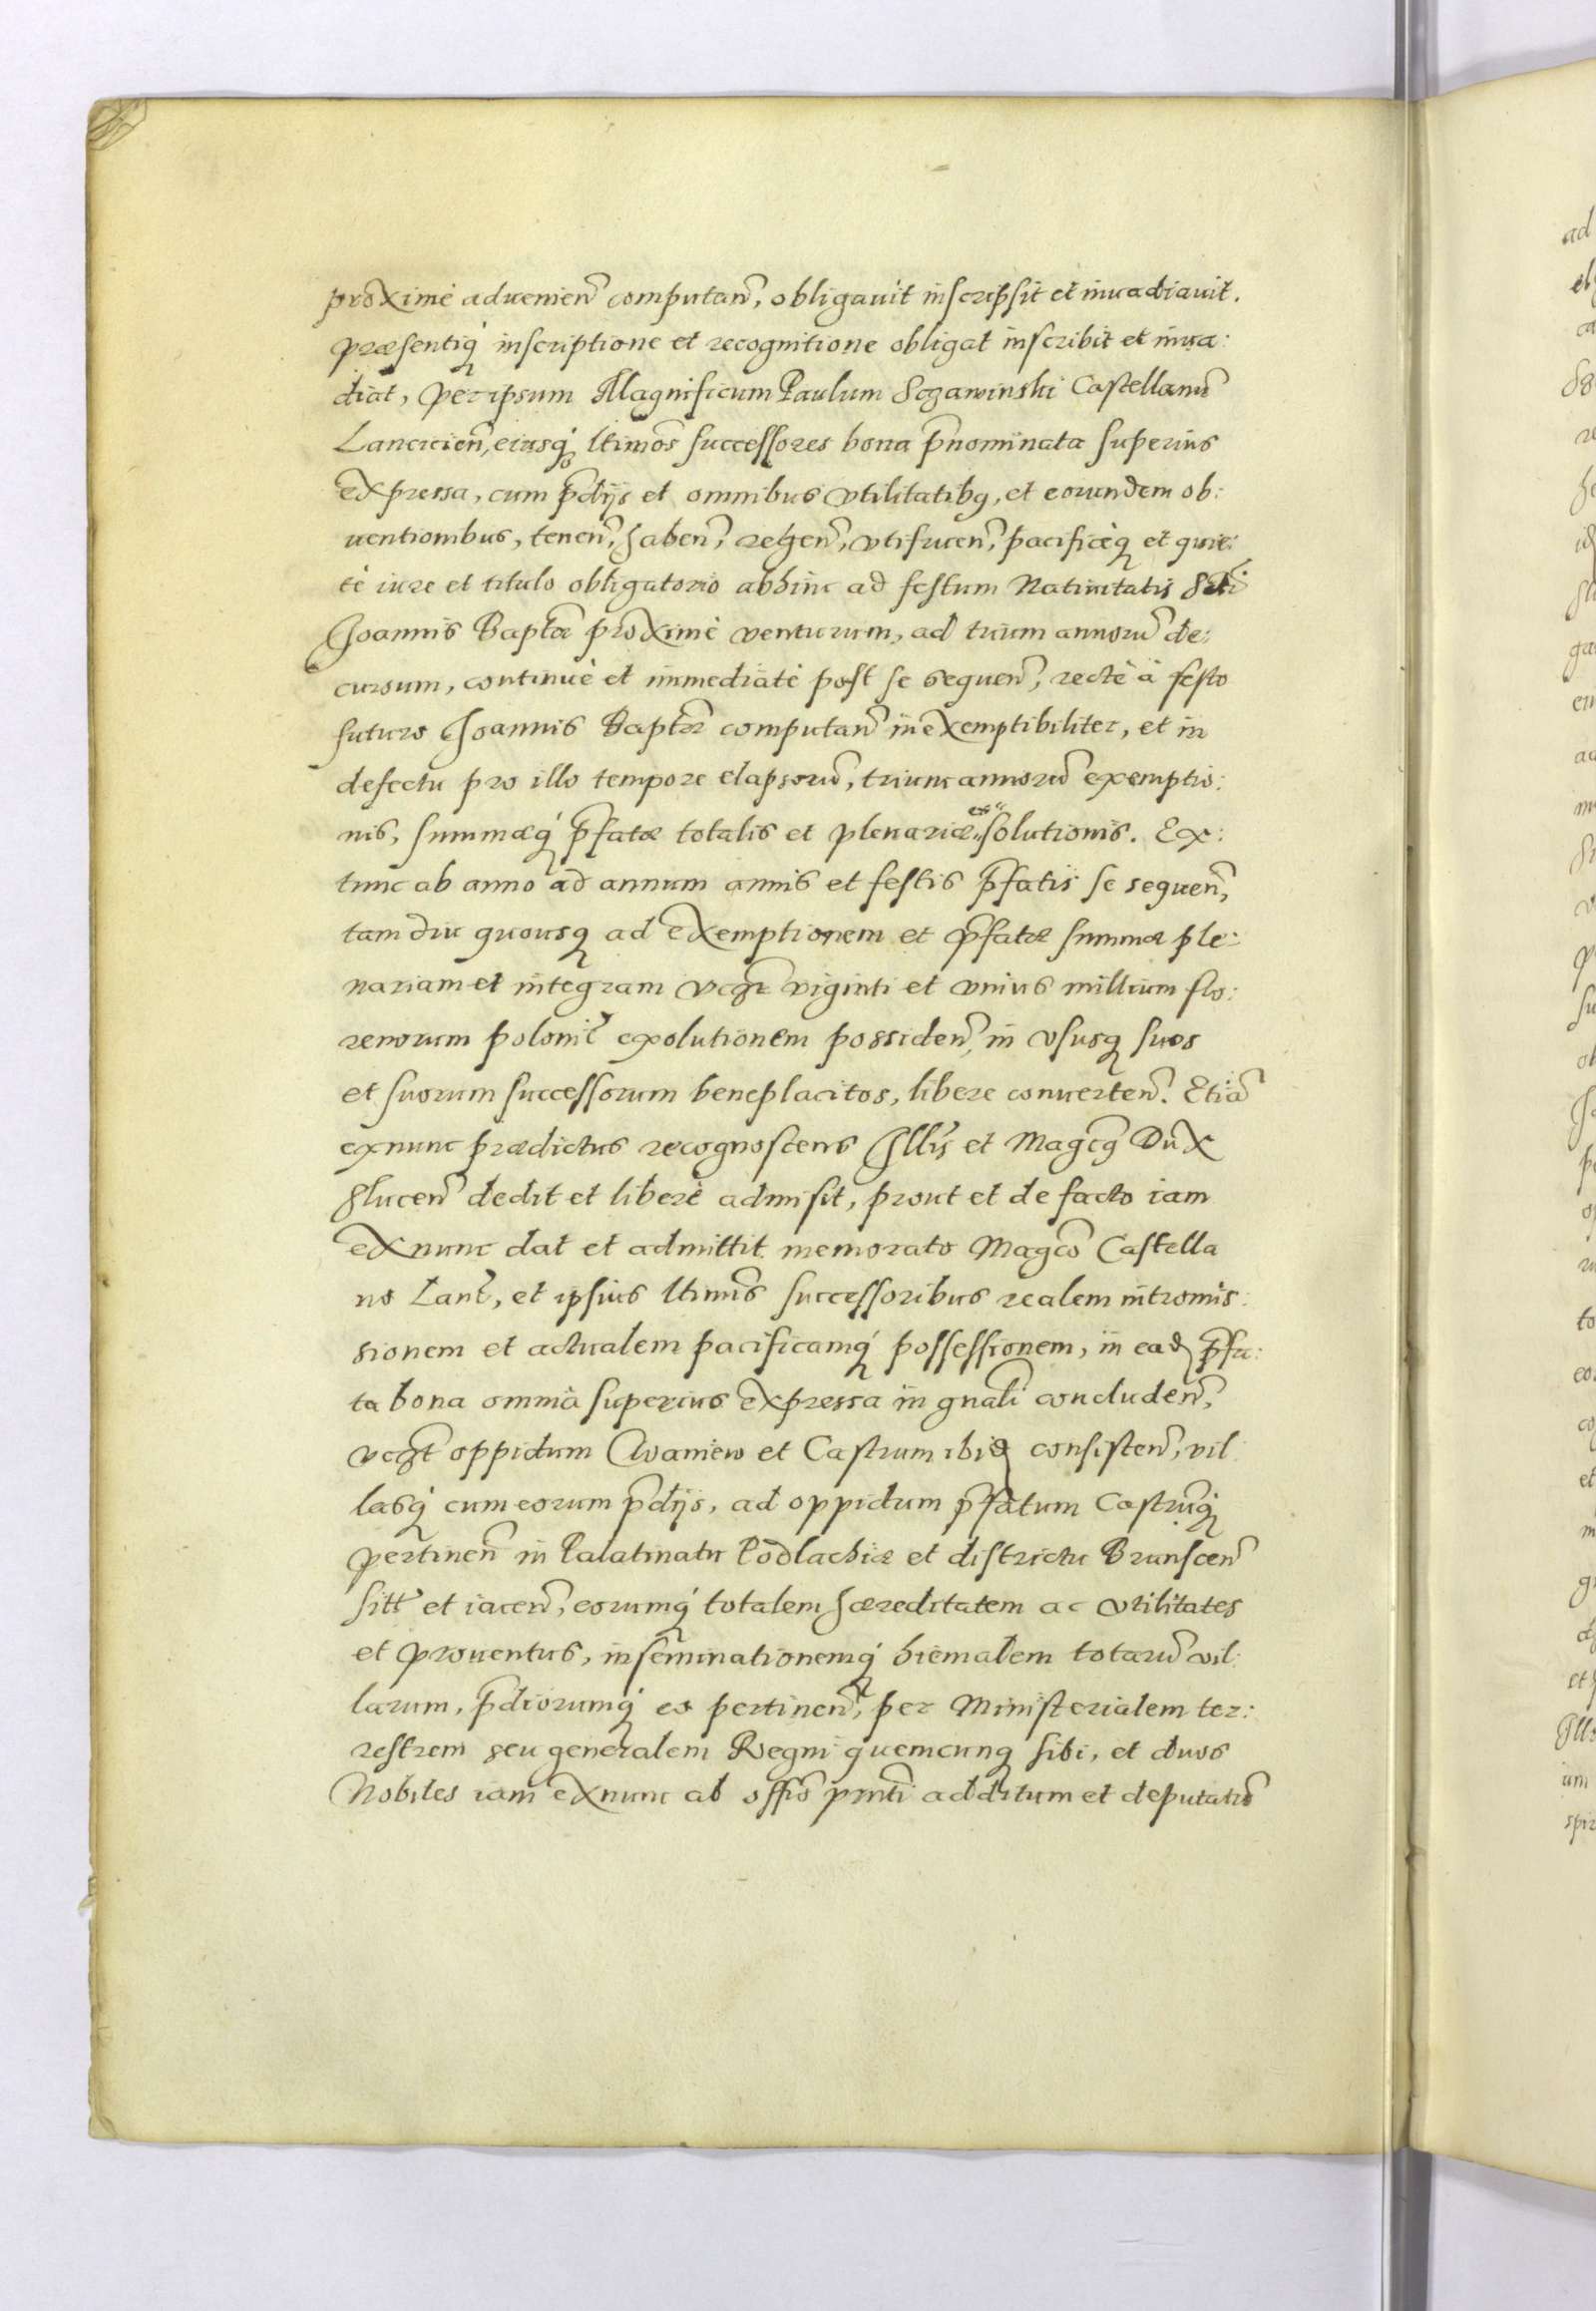 proximè aduenień computań, obligauit inscripsit et inuadiauit.
præsentiq́ inscriptione et recognitione obligat inscribit et inua:
diat, per ipsum Magnificum Paulum Sczawinski Castellanū
Lancicień, eiusq́ ltimos successores bona p̄nominata superius
expressa, cum p̄dijs et omnibus vtilitatibq, et eorundem ob:
uentionibus, teneń, habeń, regeń, vtifrueń, pacificèq et quie:
tè iure et titulo obligatorio abhinc ad festum Natiuitatis Scti
Joannis Baptæ proximè venturum, ad trium annorū de:
cursum, continuè et immediatè post se sequeń, rectè à festo
futuro Joannis Baptæ computań inexemptibiliter, et in
defectu pro illo tempore elapsorū, trium annorū exemptio:
nis, summæq́ p̄fatæ totalis et plenariæ ex solutionis. Ex:
tunc ab anno ad annum annis et festis p̄fatis se sequeń,
tam diu quousq ad exemptionem et p̄fatæ summæ ple:
nariam et integram vczt viginti et vnius millium flo:
renorum polonic̃ exolutionem possideń, in vsusq suos
et suorum successorum beneplacitos, libere conuerteń. Etiā
exnunc prædictus recognoscens Jllis et Magcq Dux
Sluceń dedit et liberè admisit, prout et de facto iam
exnunc dat et admittit memorato Magco Castella
no Lanc̃, et ipsius ltimis successoribus realem intromis:
sionem et actualem pacificamq́ possessionem, in ead p̄fa:
ta bona omnia superius expressa in gnali concludeń,
vczt oppidum Waniew et Castrum ibid consisteń, vil
lasq́ cum eorum p̄dijs, ad oppidum p̄fatum Castrumq́
pertineń in Palatinatu Podlachiæ et districtu Bransceń
sitt et iaceń, eorumq́ totalem hæreditatem ac vtilitates
et prouentus, inseminationemq́ hiemalem totarū vil:
larum, p̄diorumq́ eo pertineń, per Ministerialem ter:
restrem seu generalem Regni quemcunq sibi, et duos
Nobiles iam exnunc ab offio pnti additum et deputatū